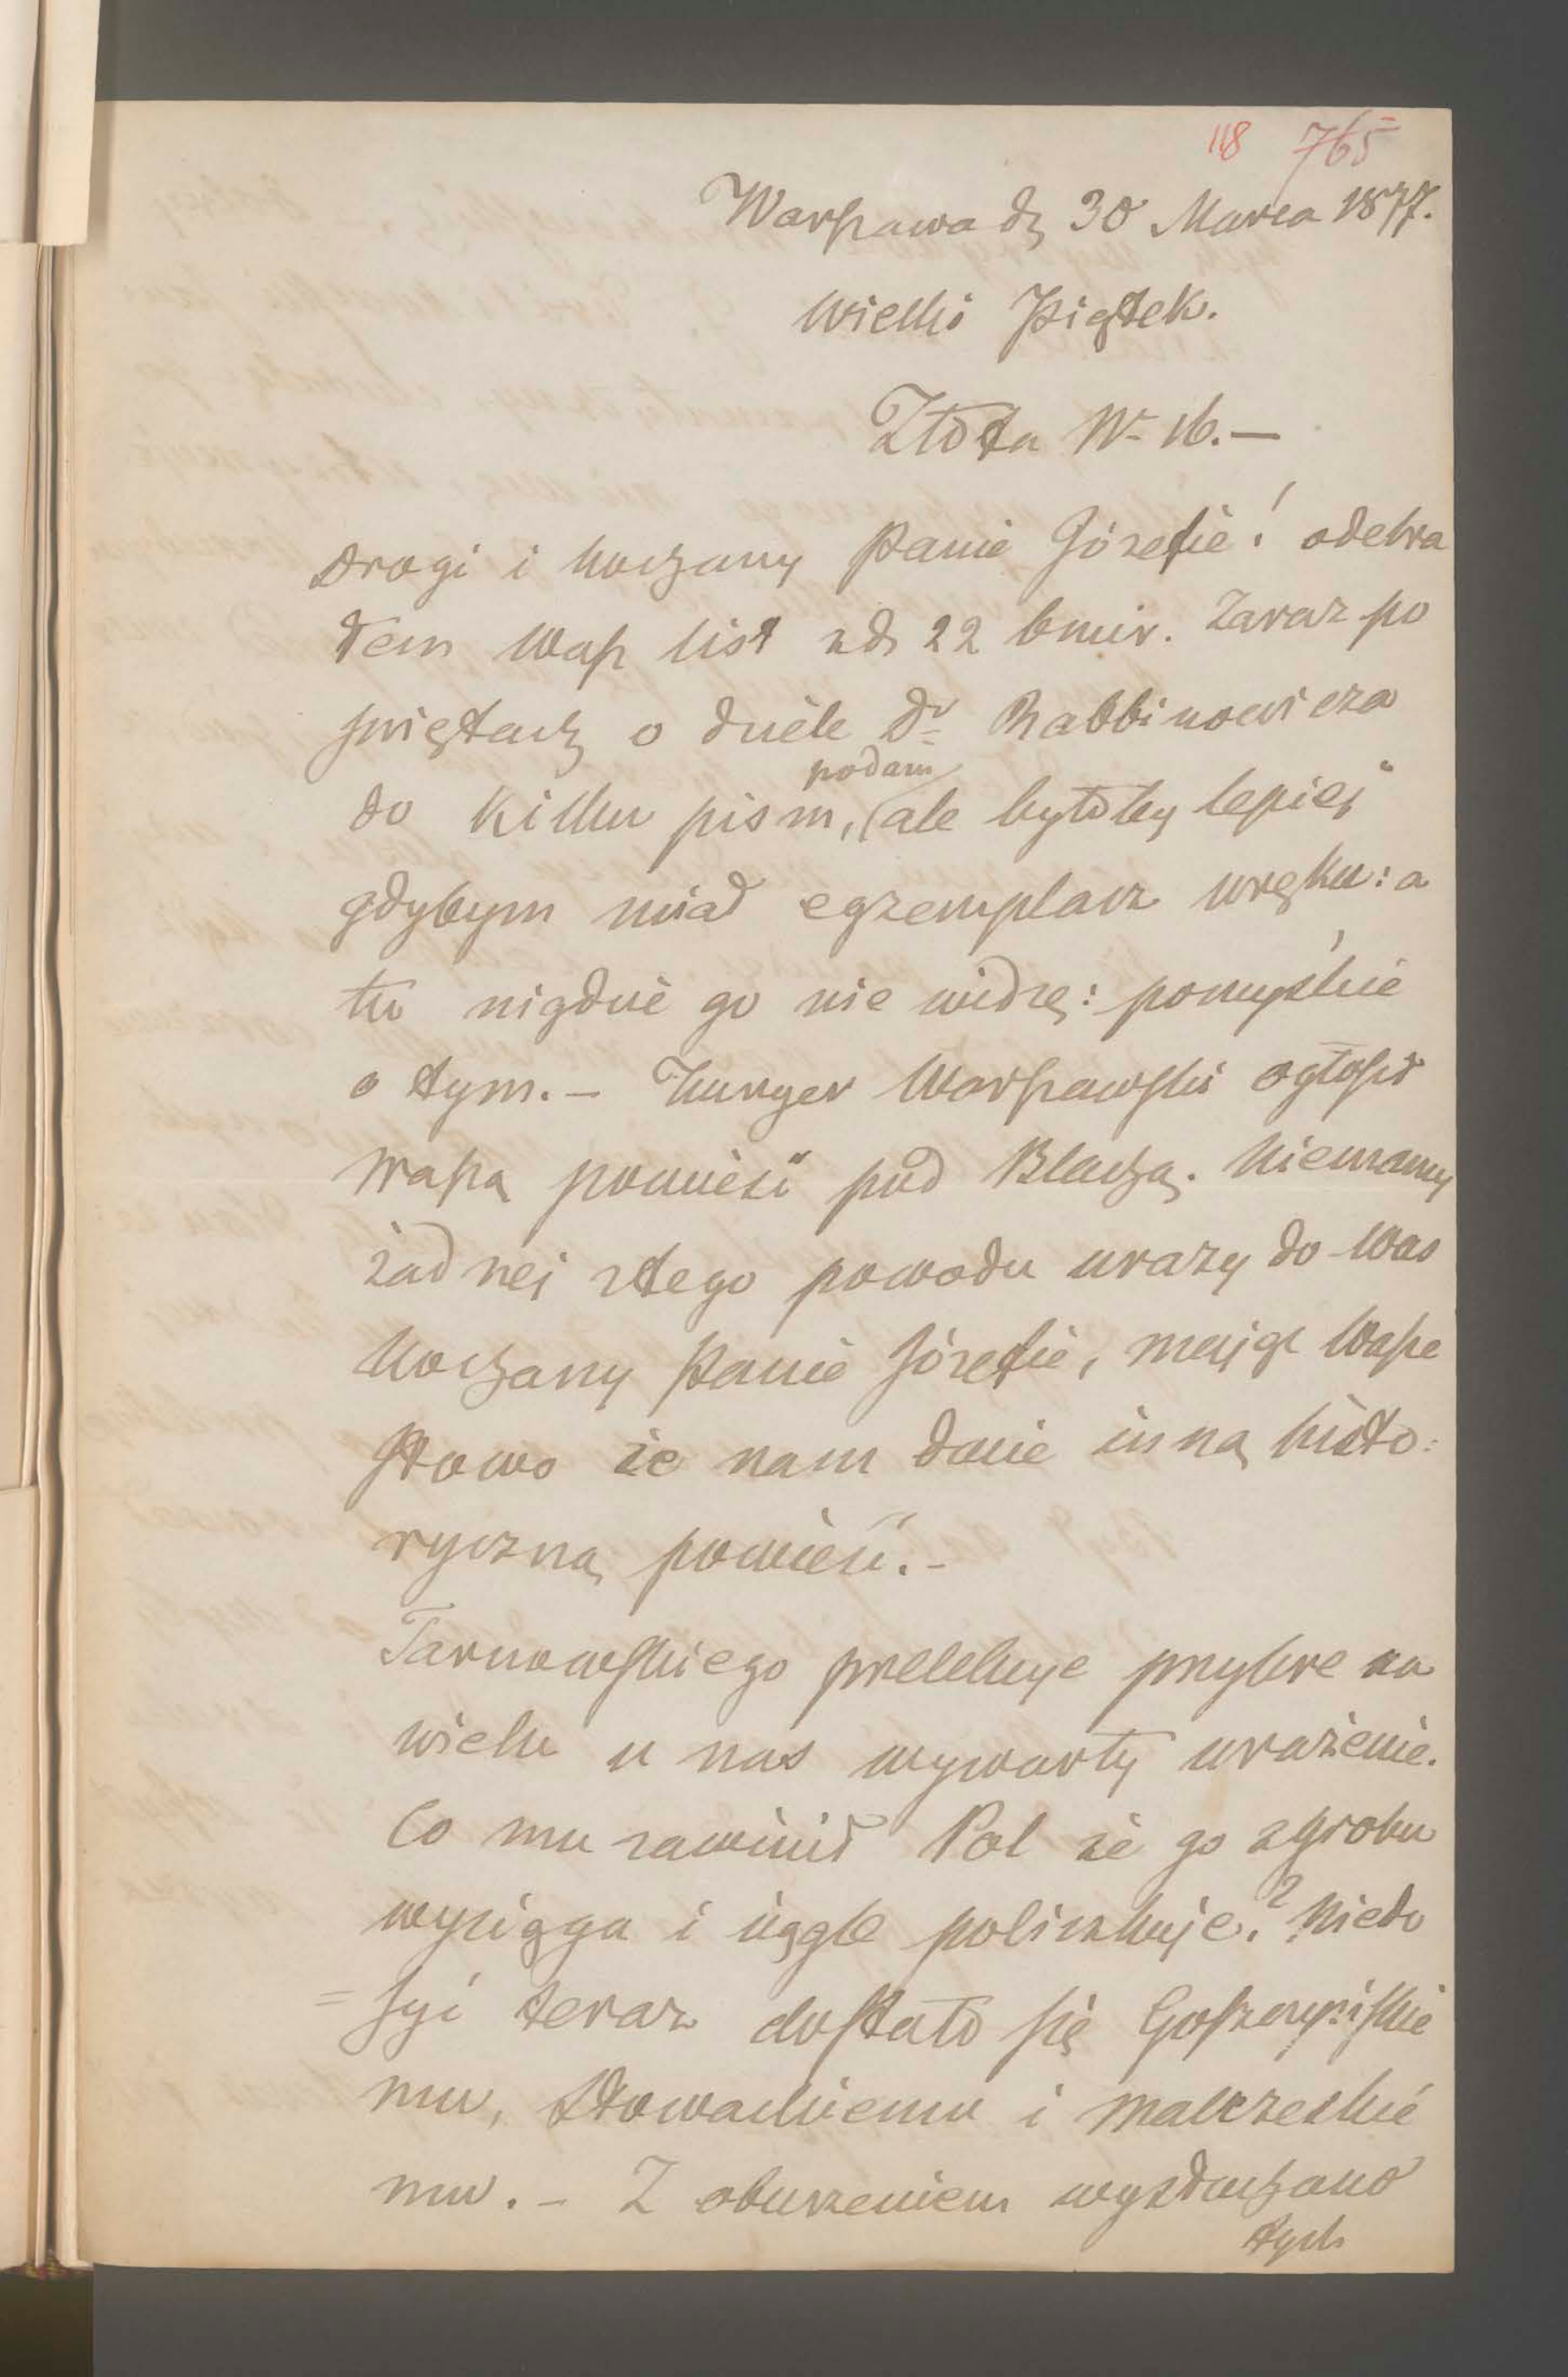 118 765
Warszawa d. 30 Marca 1877.
Wielki Piątek.
Złota N. 16.—
Drogi i kochany Panie Józefie! odebra
łem Wasz list z d. 22 b m i r. Zaraz po
świętach o dziele Dr Rabbinowicza
podam
do kilku pism, (ale byłoby lepiej
gdybym miał egzemplarz w ręku: a
tu nigdzie go nie widzę: pomyślcie
o tym. – Kuryer Warszawski ogłosił
Waszą powieść pod Blachą. Niemamy
żadnej z tego powodu urazy do Was
kochany Panie Józefie, mając Wasze
słowo że nam dacie inną histo:
ryczną powieść. –
Tarnowskiego prelekcye przykre na
wielu u nas wywarły wrażenie.
Co mu zawinił Pol że go z grobu
wyciąga i ciągle policzkuje? Niedo
= syć teraz dostało się Goszczyńskie
mu, Słowackiemu i Malczeskie
mu. – Z oburzeniem wysłuchano
tych